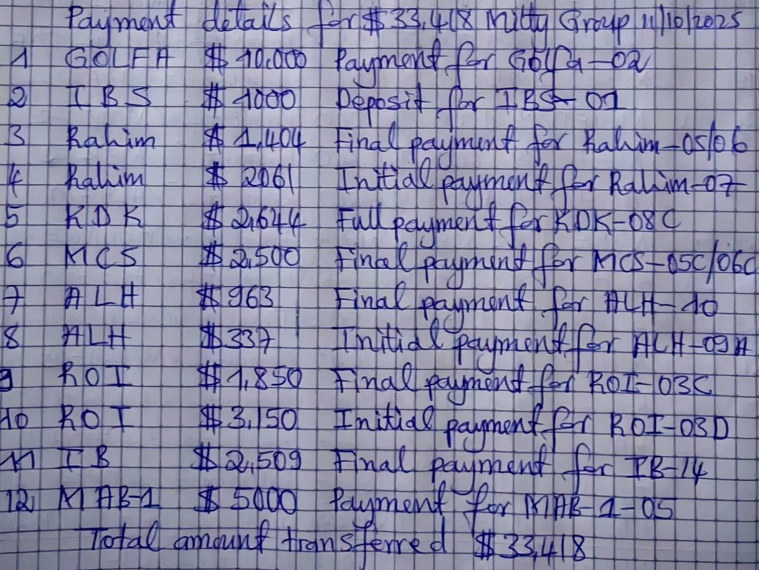 Payment details for $33,418 Mitty Group 11/10/2025
1 GOLFA $10.000 Payment for Golfa-02
2 IBS $1000 Deposit for IBS-01
3 Rahim $1,404 Final payment for Rahim-05/06
4 Rahim $2061 Initial payment for Rahim-07
5 KDK $2,644 Full payment for KDK-08C
6 MCS $2,500 Final payment for MCS-05C/06C
7 ALH $963 Final payment for ALH-10
8 ALH $337 Initial payment for ALH-09A
9 ROI $1,850 Final payment for ROI-03C
10 ROI $3,150 Initial payment for ROI-03D
11 IB $2,509 Final payment for IB-14
12 MAB-1 $5000 Payment for MAB-1-05
Total amount transferred $33,418